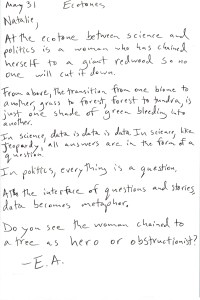 May 31 Ecotones
Natalie,
At the ecotone between science and
politics is a woman who has chained
herself to a giant redwood so no
one will cut it down.
From above, the transition from one biome to
another, grass to forest, forest to tundra, is
just one shade of green bleeding into
another.
In science, data is data. In science, like
Jeopardy, all answers are in the form of a
question.
In politics, everything is a question.
At the interface of questions and stories,
data becomes metaphor.
Do you see the woman chained to
a tree as hero or obstructionist?
—E.A.